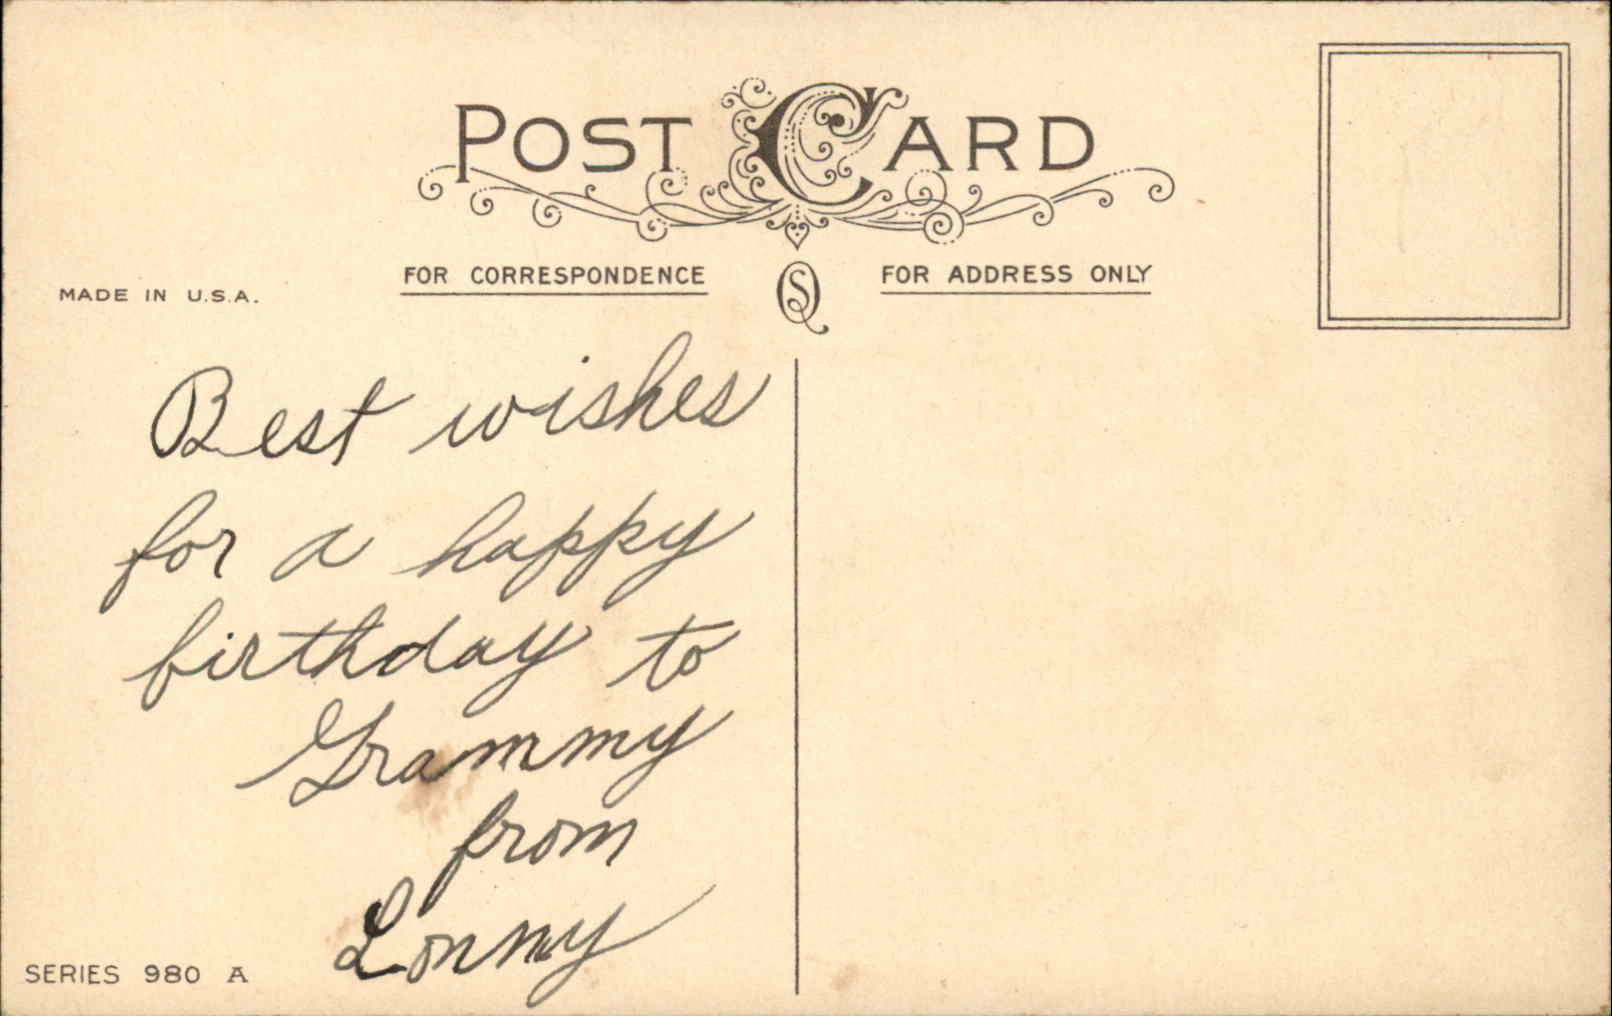 POST CARD
FOR CORRESPONDENCE
FOR ADDRESS ONLY
MADE IN U.S.A.
Best wishes
for a happy
birthday to
Grammy
from
Lonny
SERIES 980 A